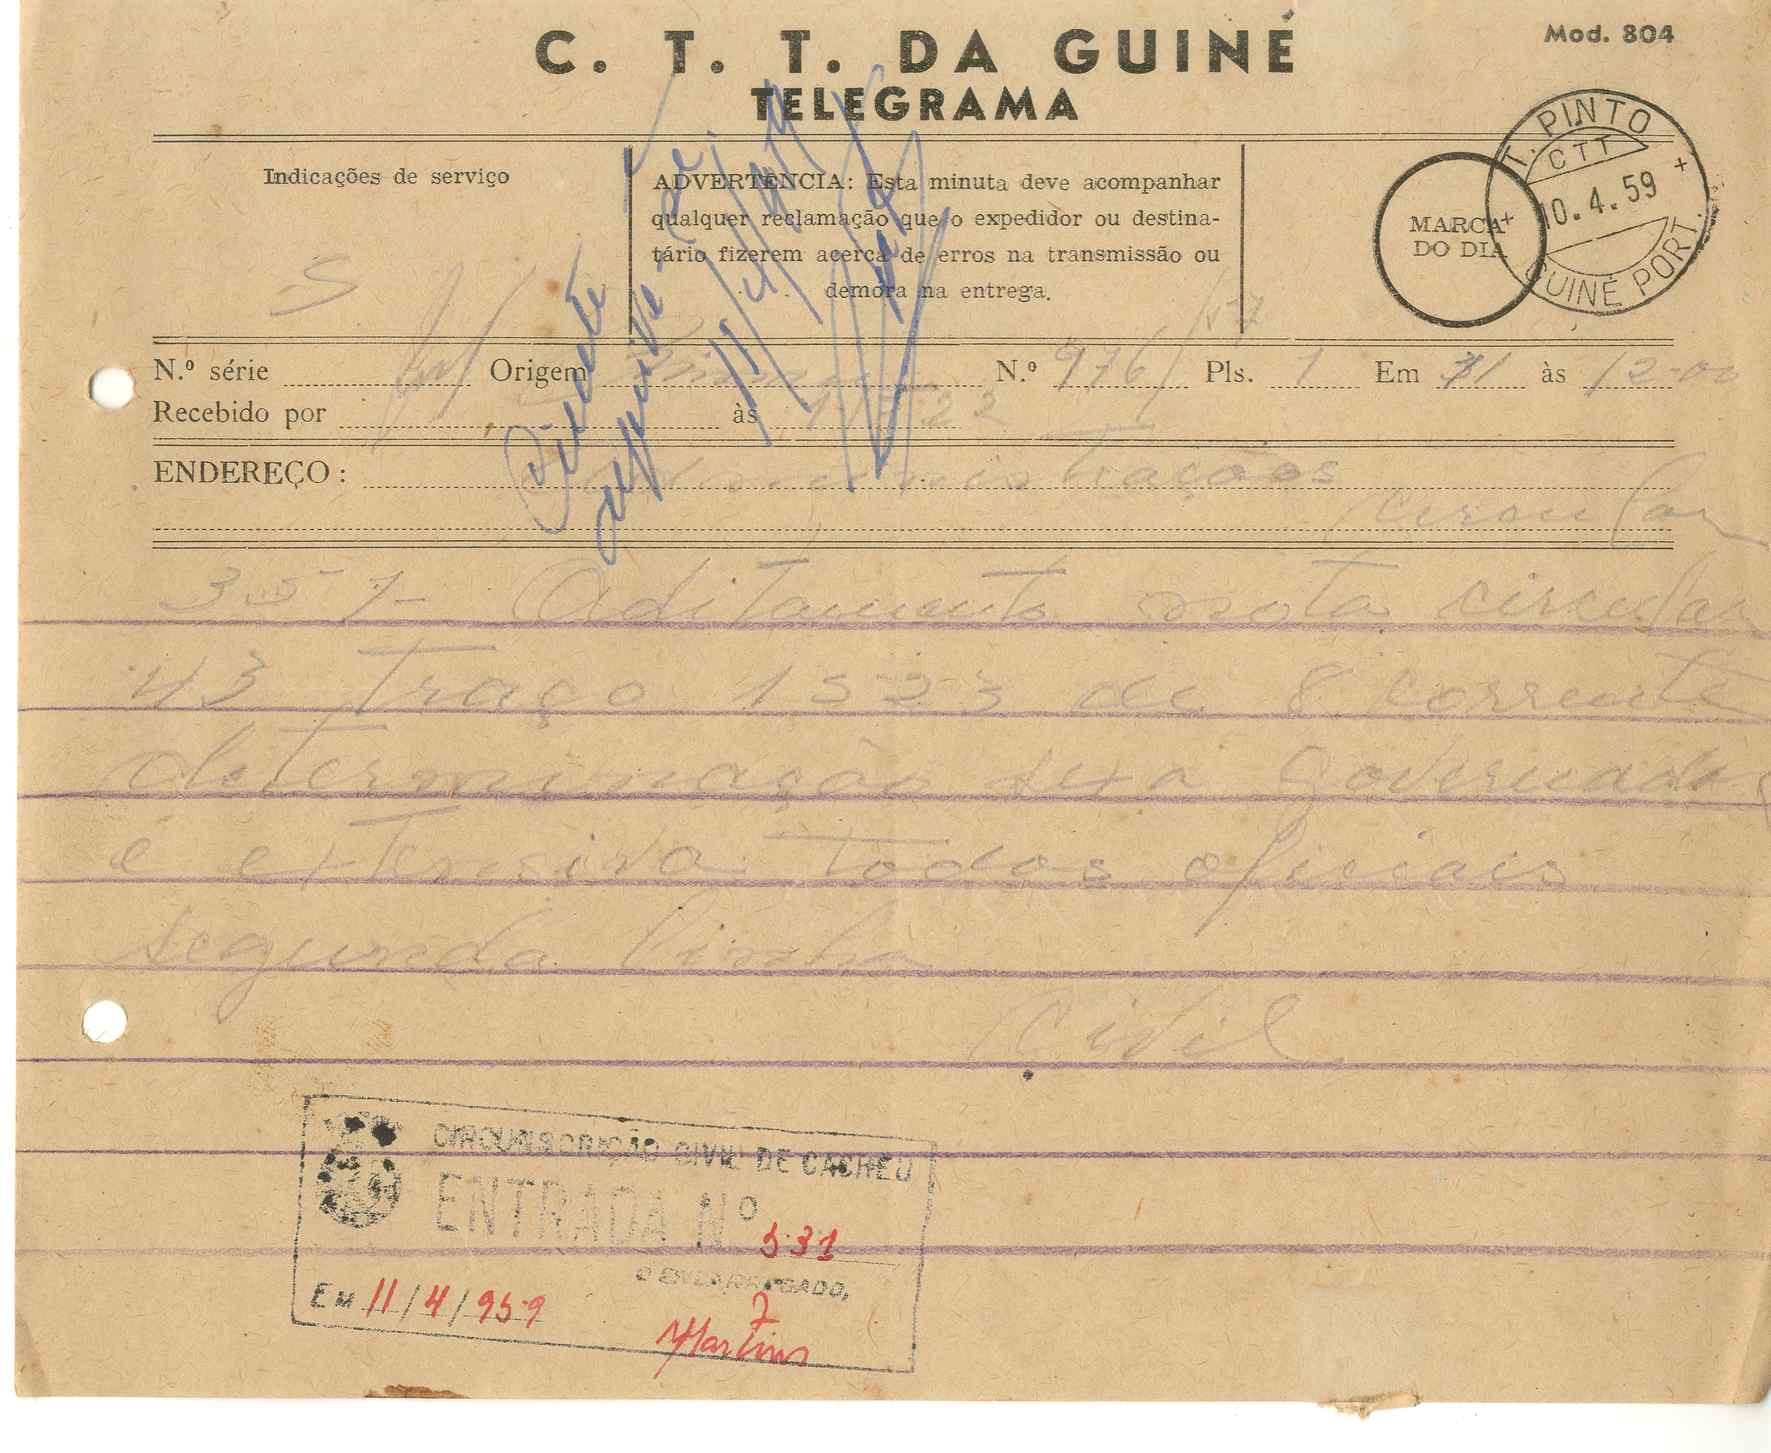 C. T. T. DA GUINÉ
Mod. 804
TELEGRAMA
Indicações de serviço
ADVERTÊNCIA: Esta minuta deve acompanhar
qualquer reclamação que o expedidor ou destina-
tário fizerem acerca de erros na transmissão ou
demora na entrega.
MARCA
DO DIA
T. PINTO
CTT
10.4.59
GUINÉ PORT.
S
Ciente
11/4/959
N.º série Origem N.º 976/57 Pls. 1 Em às 12-00
Recebido por às
ENDEREÇO: Administrações
Circular
357- Aditamento nota circular
43 traço 1523 de 8 corrente
determinação sexa Governador
é extensiva todos oficiais
segunda linha
Civil
CIRCUNSCRIÇÃO CIVIL DE CACHEU
ENTRADA Nº 531
O ENCARREGADO,
EM 11/4/959
Martins